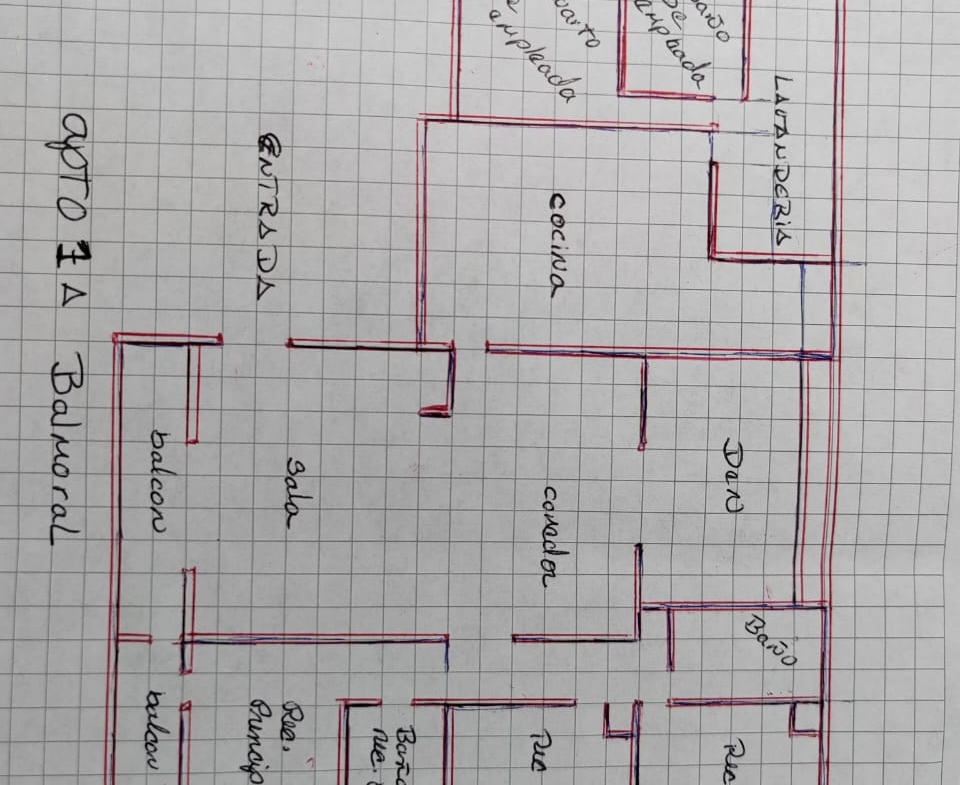 cuarto
de
empleada
baño
de
empleada
LAVANDERIA
cocina
ENTRADA
apto 1A Balmoral
balcon
Sala
comedor
Den
Baño
balcon
Rec.
Princip
Baño
rec.
rec
Rec